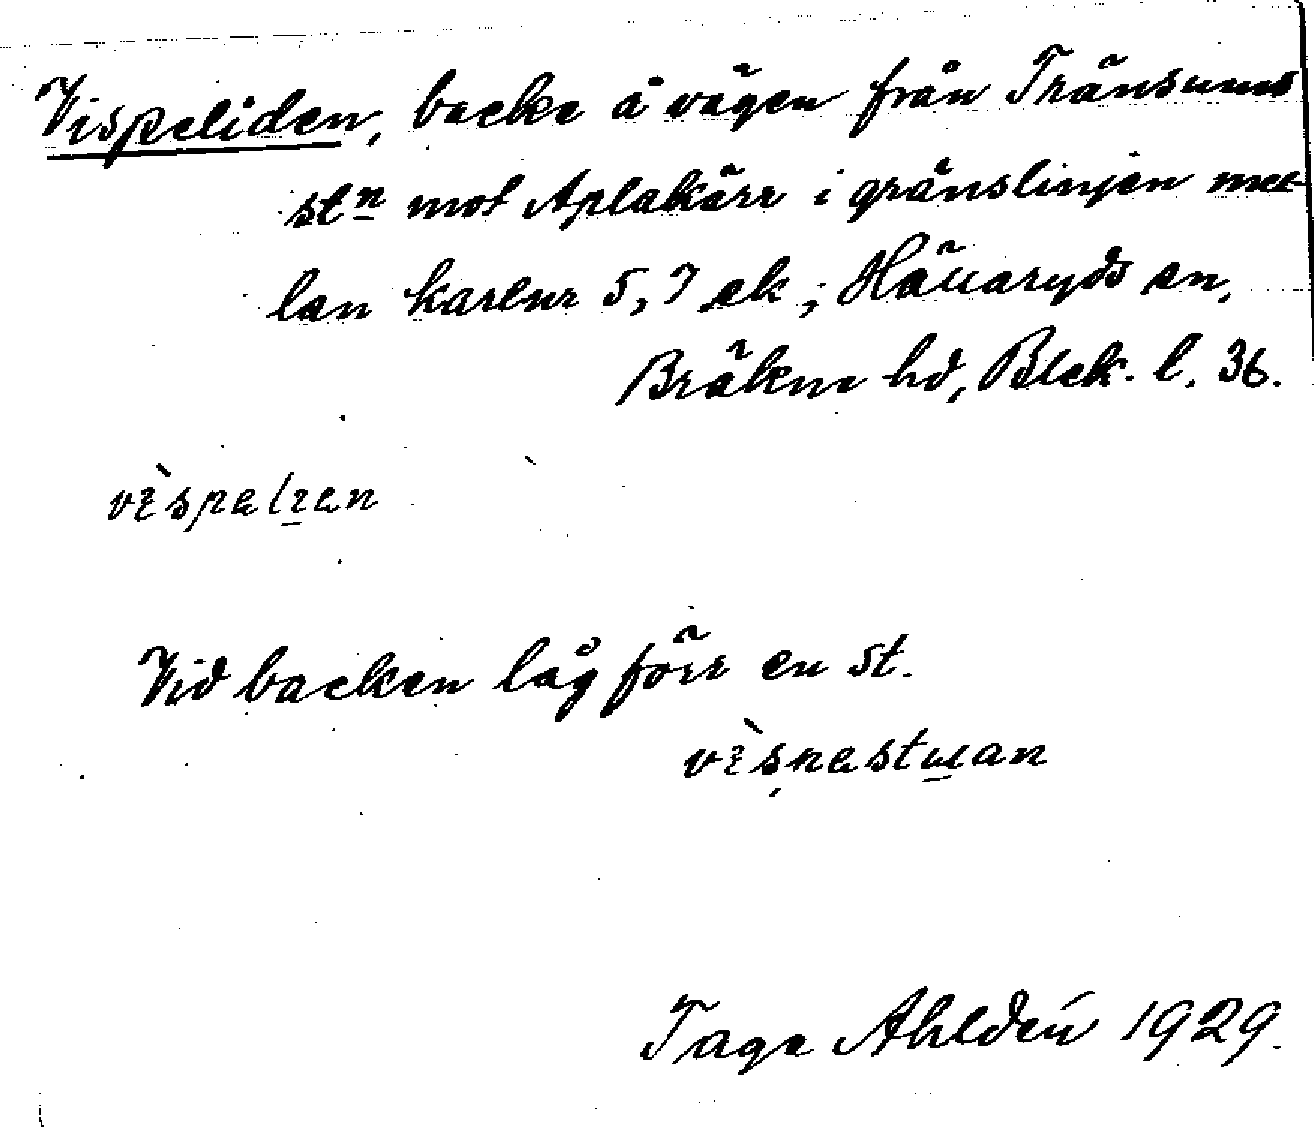 Vispeliden, backe å vägen från Tränsums
stn mot Aplakärr i gränslinjen mel-
lan kartur 5, 7 ek; Hällaryds sn,
Bräkne hd, Blek. l. 36.
vìspelien
Vid backen låg förr en st.
Tage Ahldén 1929.